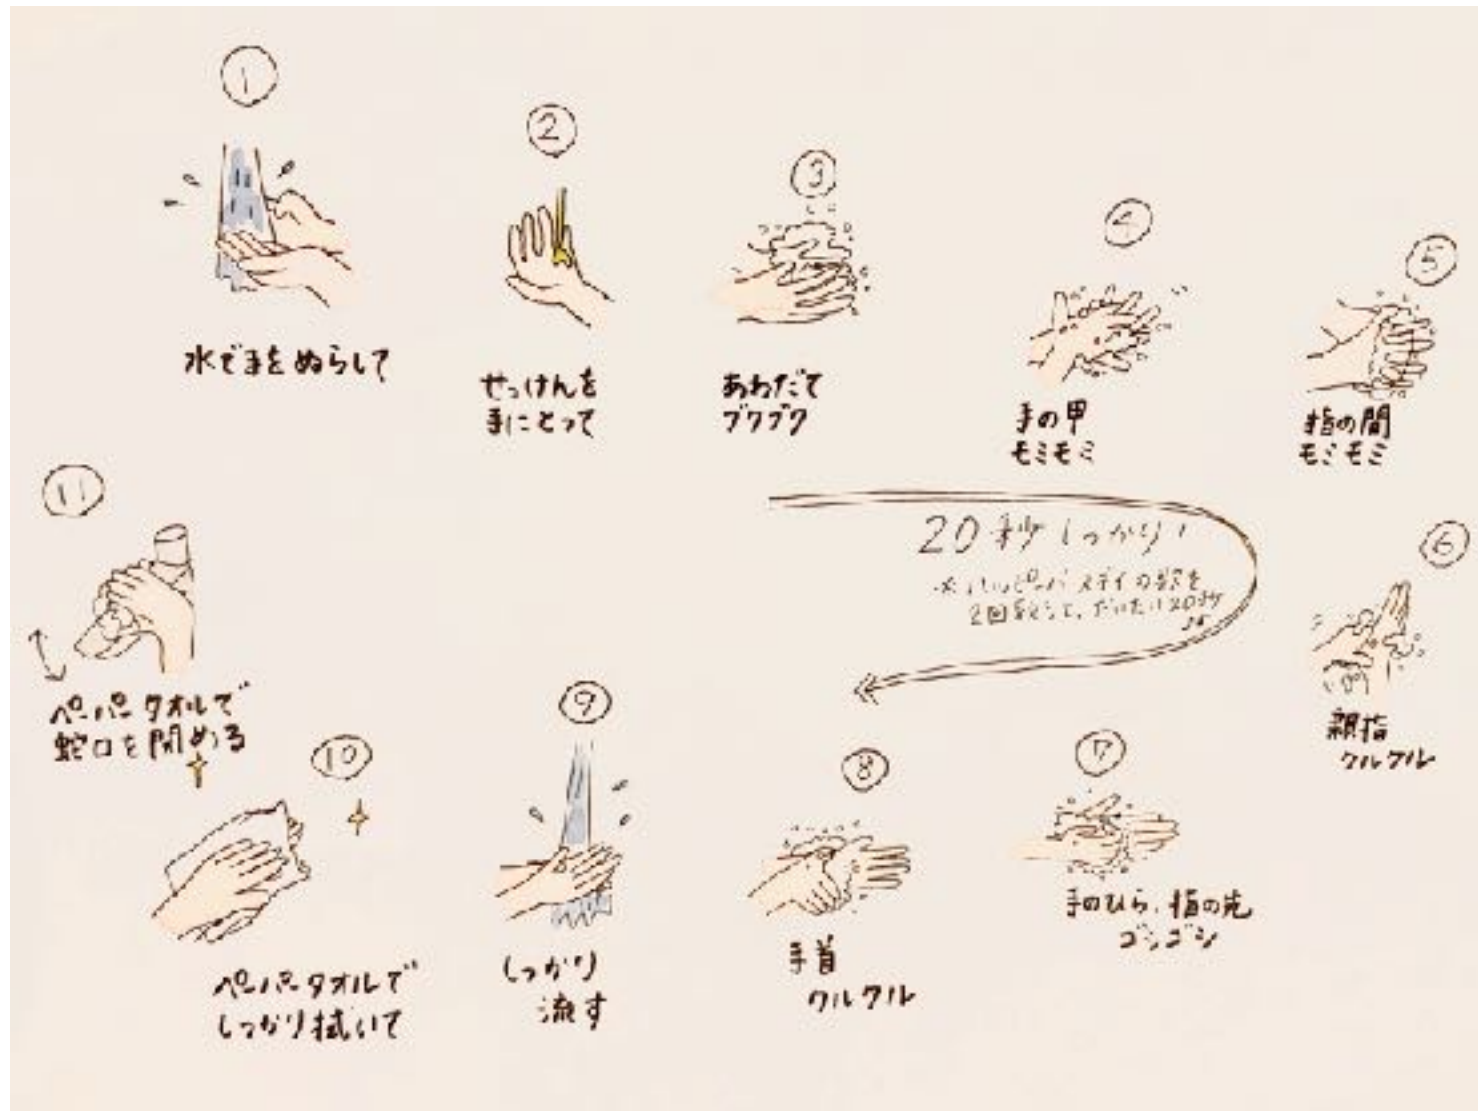 ①
水で手をぬらして
②
せっけんを
手にとって
③
あわだて
ブクブク
④
手の甲
モミモミ
⑤
指の間
モミモミ
20秒しっかり!
※ハッピーバースデイの歌を
2回歌うと、だいたい20秒
⑥
親指
クルクル
⑦
手のひら、指の先
ゴシゴシ
⑧
手首
クルクル
⑨
しっかり
流す
⑩
ペーパータオルで
しっかり拭いて
⑪
ペーパータオルで
蛇口を閉める